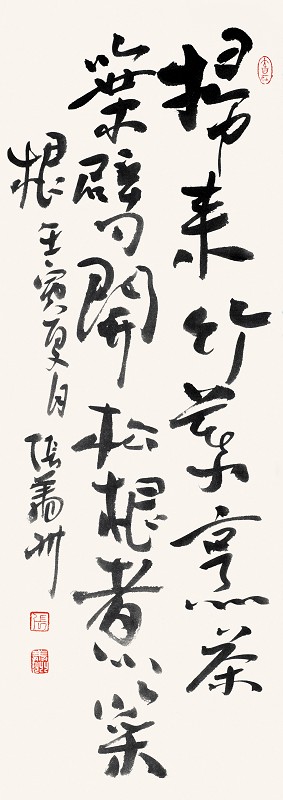 掃来竹葉烹茶
葉劈開松根煮菜
根 壬寅夏月 張
張